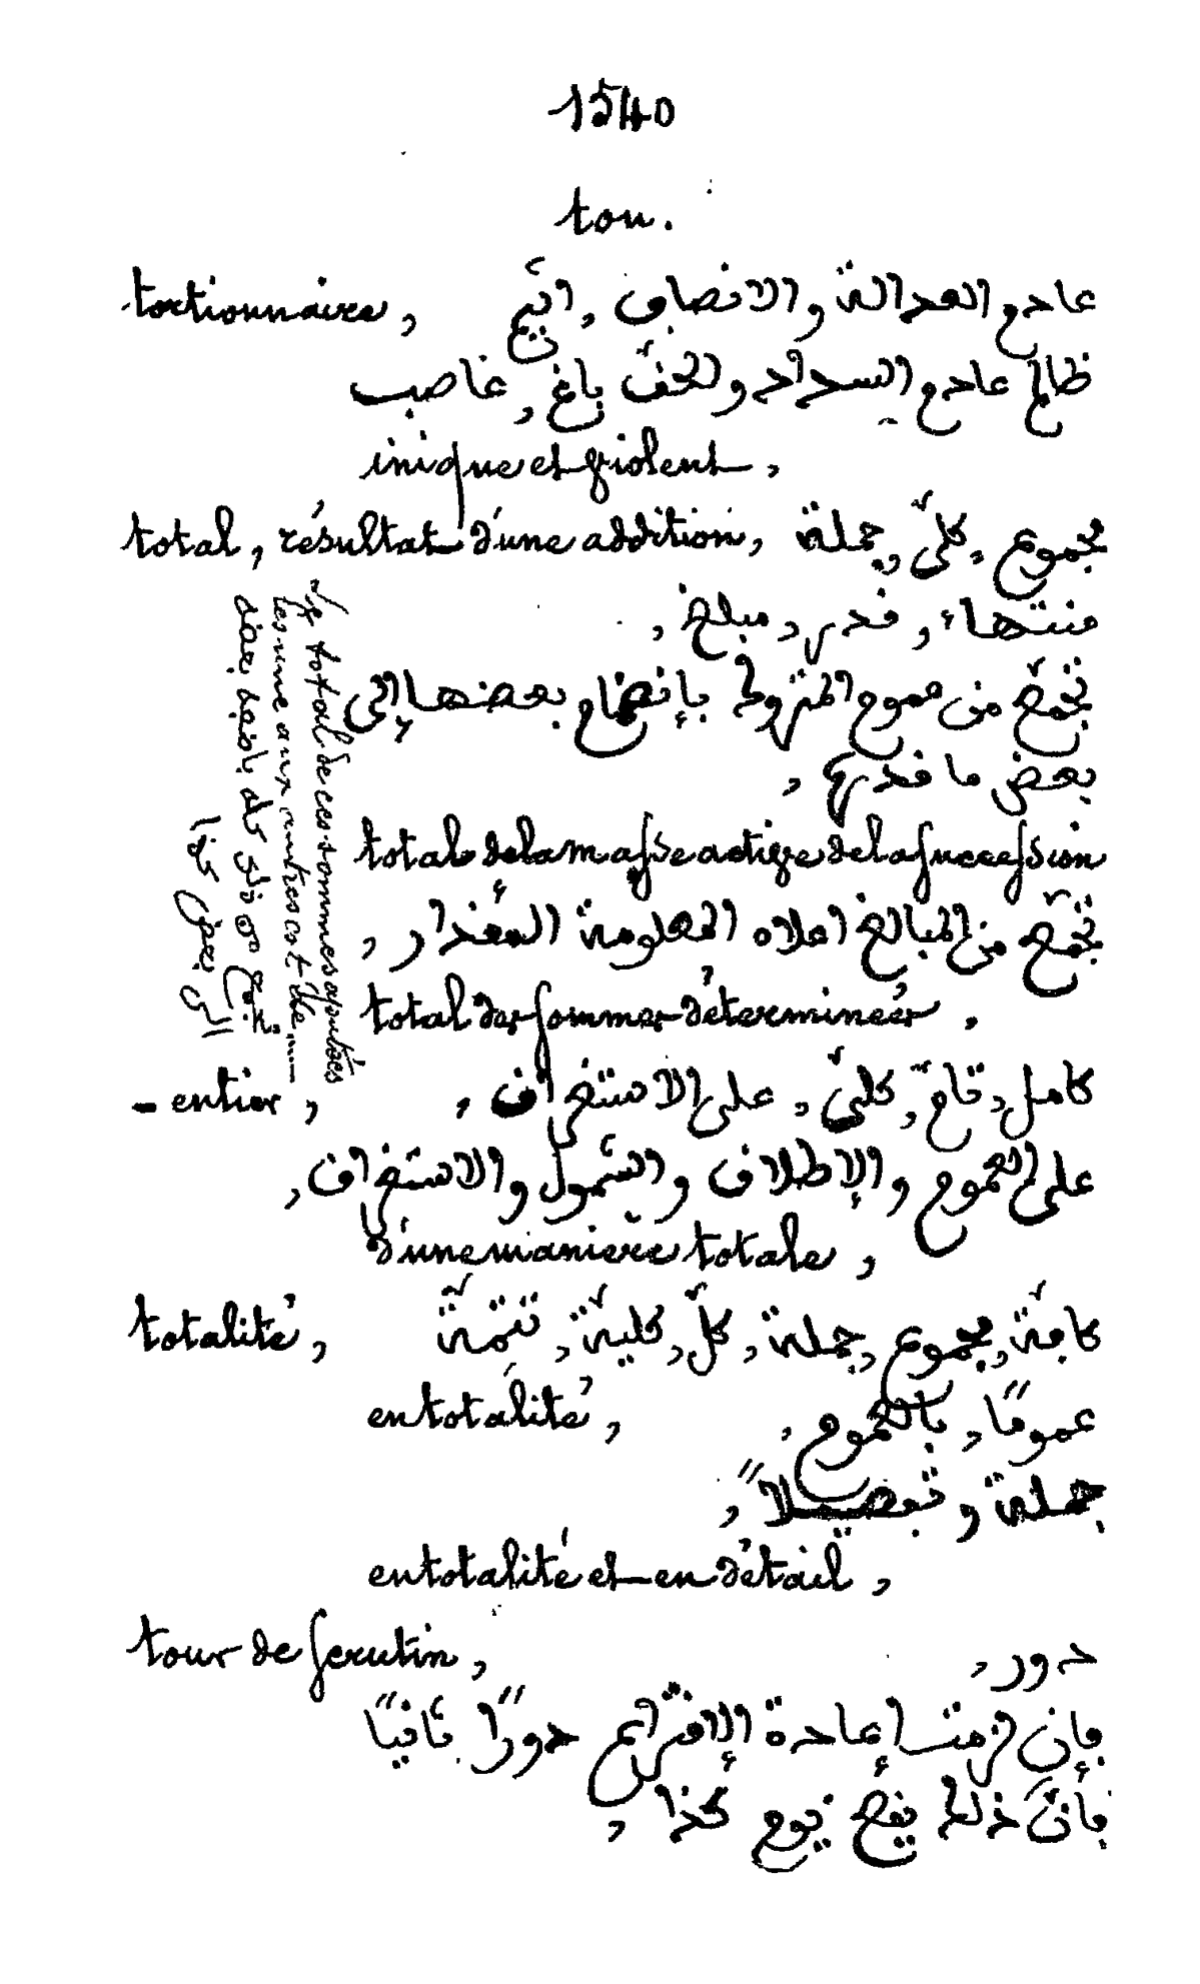 1540
tou.
tortionnaire, عادم العدالة والانصاف, اثيم
ظالم عادم السداد والحق باغ, غاصب
inique et violent,
total, résultat d'une addition, مجموع, كلّ, جملة
منتهاء, قدر, مبلغ,
تجمّع من عموم المتروك بإنضمام بعضها إلى
بعض ما قدرها,
total de la masse active de la succession
تجمّع من المبالغ اعلاه المعلومة المقدار,
total des sommes déterminées,
Le total de ces sommes ajoutées
les unes aux autres est de
تجمع من ذلك كله باضافة بعضه
الى بعض كذا
- entier, كامل, تامّ, كليّ, على الاستغراق,
على العموم والإطلاق والشمول والاستغراق,
d'une manière totale,
totalité, كافّة, مجموع, جملة, كلّ, كليّة, تتمّة
en totalité, عمومًا, بالعموم,
جملة وتفصيلاً,
en totalité et en détail,
tour de scrutin, دور,
فإن لزمت إعادة الإقتراع دورًا ثانيًا
فأنّ ذلك يقع يوم كذا,